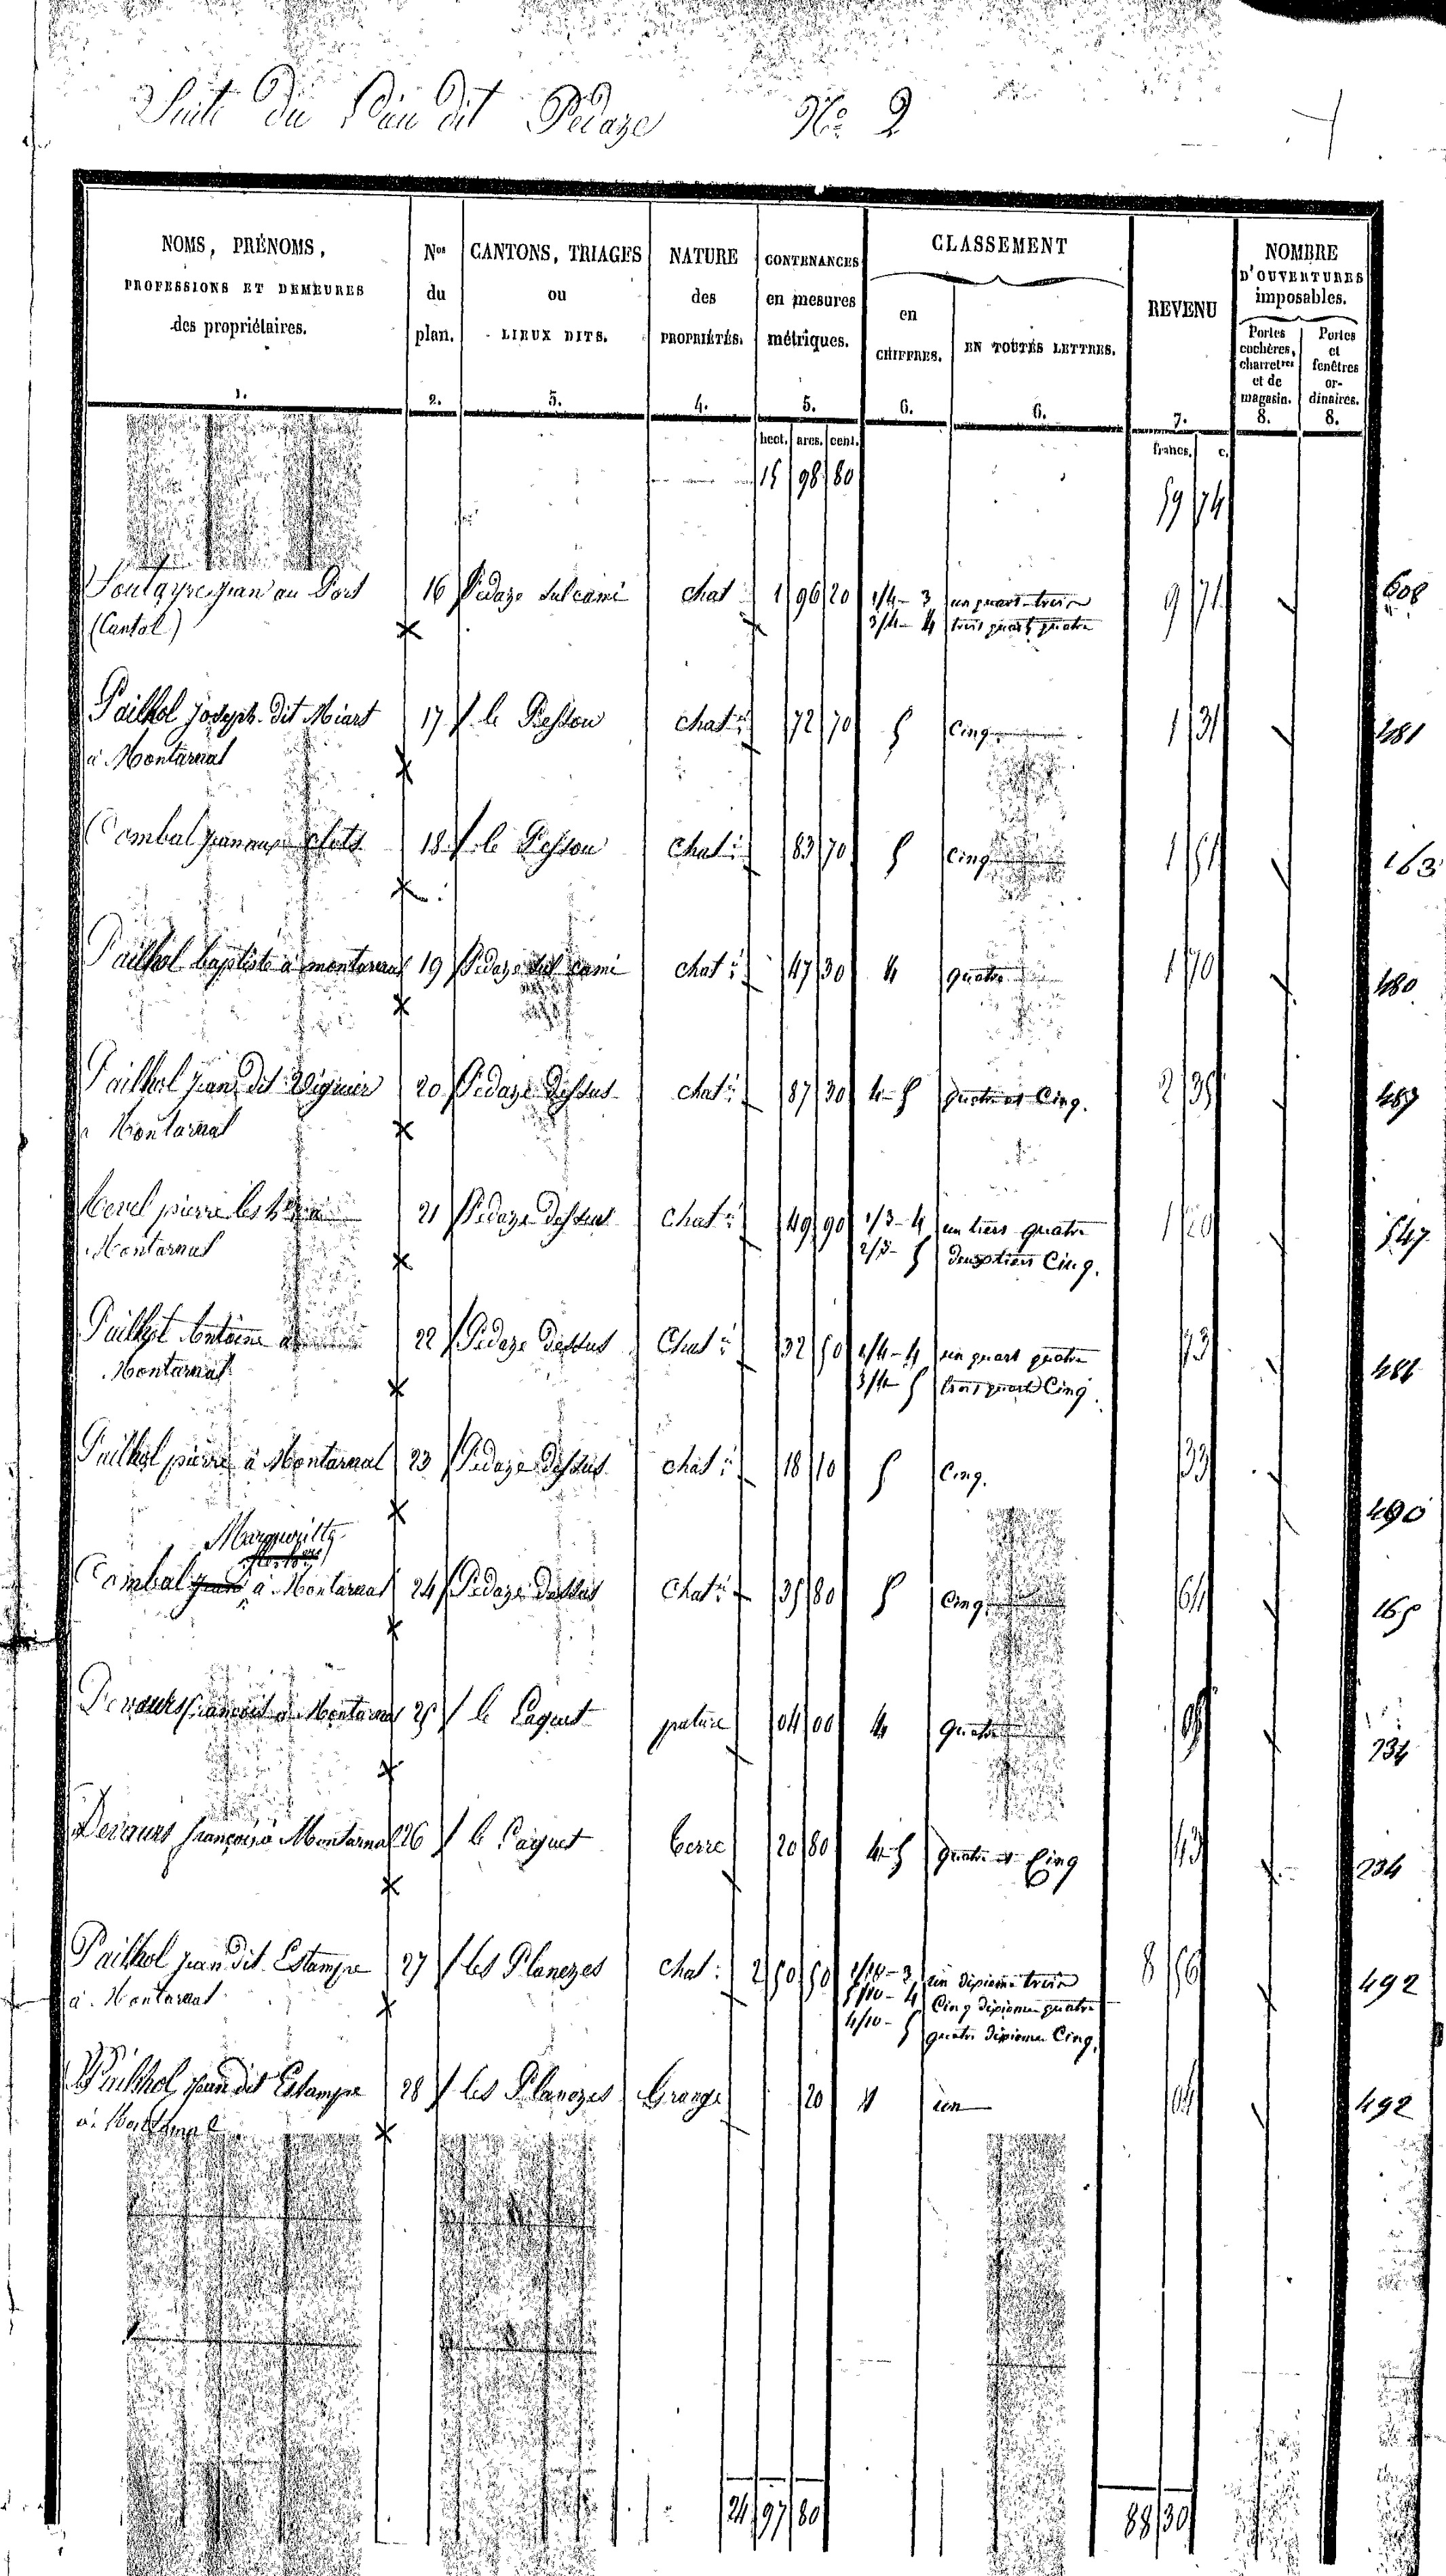 Suite du Plan dit Pédaze No. 2
NOMS, PRÉNOMS,
PROFESSIONS ET DEMEURES
des propriétaires.
1.
Nos
du
plan.
2.
CANTONS, TRIAGES
ou
LIEUX DITS.
3.
NATURE
des
PROPRIÉTÉS.
4.
CONTENANCES
en mesures
métriques.
5.
CLASSEMENT
en
CHIFFRES.
6.
EN TOUTES LETTRES.
6.
REVENU
7.
NOMBRE
D'OUVERTURES
imposables.
Portes
cochères,
charretres
et de
magasin.
8.
Portes
et
fenêtres
or-
dinaires.
8.
hect. ares. cent. francs. c.
15 98 80 59 74
jean au Port 16 Pédaze sul cami chat 1 96 20 1/4 - 3 un quart trois 9 71 608
(Cantal) 3/4 - 4 trois quart quatre
Pailhol joseph dit Miart 17 le Besson chat 72 70 5 Cinq 1 31 481
à Montarnal
Combal jean aux clots 18 le Besson chat 83 70 5 Cinq 1 51 163
Pailhol baptiste à montarnal 19 Pédaze sul cami chat 47 30 4 quatre 1 70 480
Pailhol jean dit Viguier 20 Pédaze Dessus chat 87 30 4-5 quatre et Cinq. 2 35 489
à Montarnal
pierre les 21 Pédaze Dessus chat 49 90 1/3 - 4 un tiers quatre 1 20 547
Montarnal 2/3 - 5 deux tiers Cinq.
Pailhol Antoine à 22 Pédaze Dessus Chat 32 50 1/4 - 4 un quart quatre 73
Montarnal 3/4 5 trois quart Cinq
Pailhol pierre à Montarnal 23 Pédaze Dessus chat 18 10 5 Cinq. 33 490
Margueritte
Combal à Montarnal 24 Pédaze Dessus Chat 35 80 5 Cinq 64 165
françois à Montarnal 25 le Paquet pature 04 00 4 Quatre 234
françois à Montarnal 26 le Paquet terre 20 80 4-5 quatre et Cinq 43 234
Pailhol jean dit Estampe 27 les Planezes chat 2 50 50 1/10 - 3 un dixieme trois 8 56 492
à Montarnal 5/10 - 4 Cinq dixieme quatre
4/10 - 5 quatre dixieme Cinq.
Pailhol jean dit Estampe 28 les Planezes Grange 20 un 04 492
à Montarnal
24 97 80 88 30